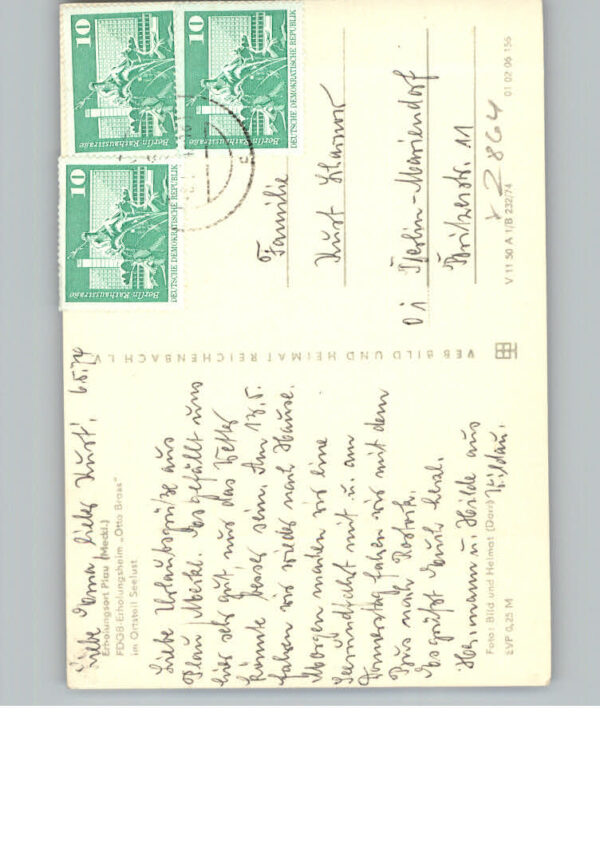 Liebe Erna, lieber Kurt! 6.5.74
Erholungsort Plau (Meckl.)
FDGB-Erholungsheim „Otto Brass"
im Ortsteil Seelust
Liebe Urlaubsgrüße aus
Plau Meckl. Es gefällt uns
hier sehr gut nur das Wetter
könnte besser sein. Am 13.5.
fahren wir wieder nach Hause.
Morgen machen wir eine
Seerundfahrt mit u. am
Donnerstag fahren wir mit dem
Bus nach Rostock.
Es grüßt Euch herzl.
Hermann u. Hilde aus
Wildau.
Foto: Bild und Heimat (Dorr)
EVP 0,25 M
VEB BILD UND HEIMAT REICHENBACH I. V.
10
Berlin Rathausstraße
DEUTSCHE DEMOKRATISCHE REPUBLIK
10
Berlin Rathausstraße
DEUTSCHE DEMOKRATISCHE REPUBLIK
10
Berlin Rathausstraße
Familie
Kurt
Berlin-Mariendorf
Britzerstr. 11
2864
V 11 50 A 1/B 232/74
01 02 06 156